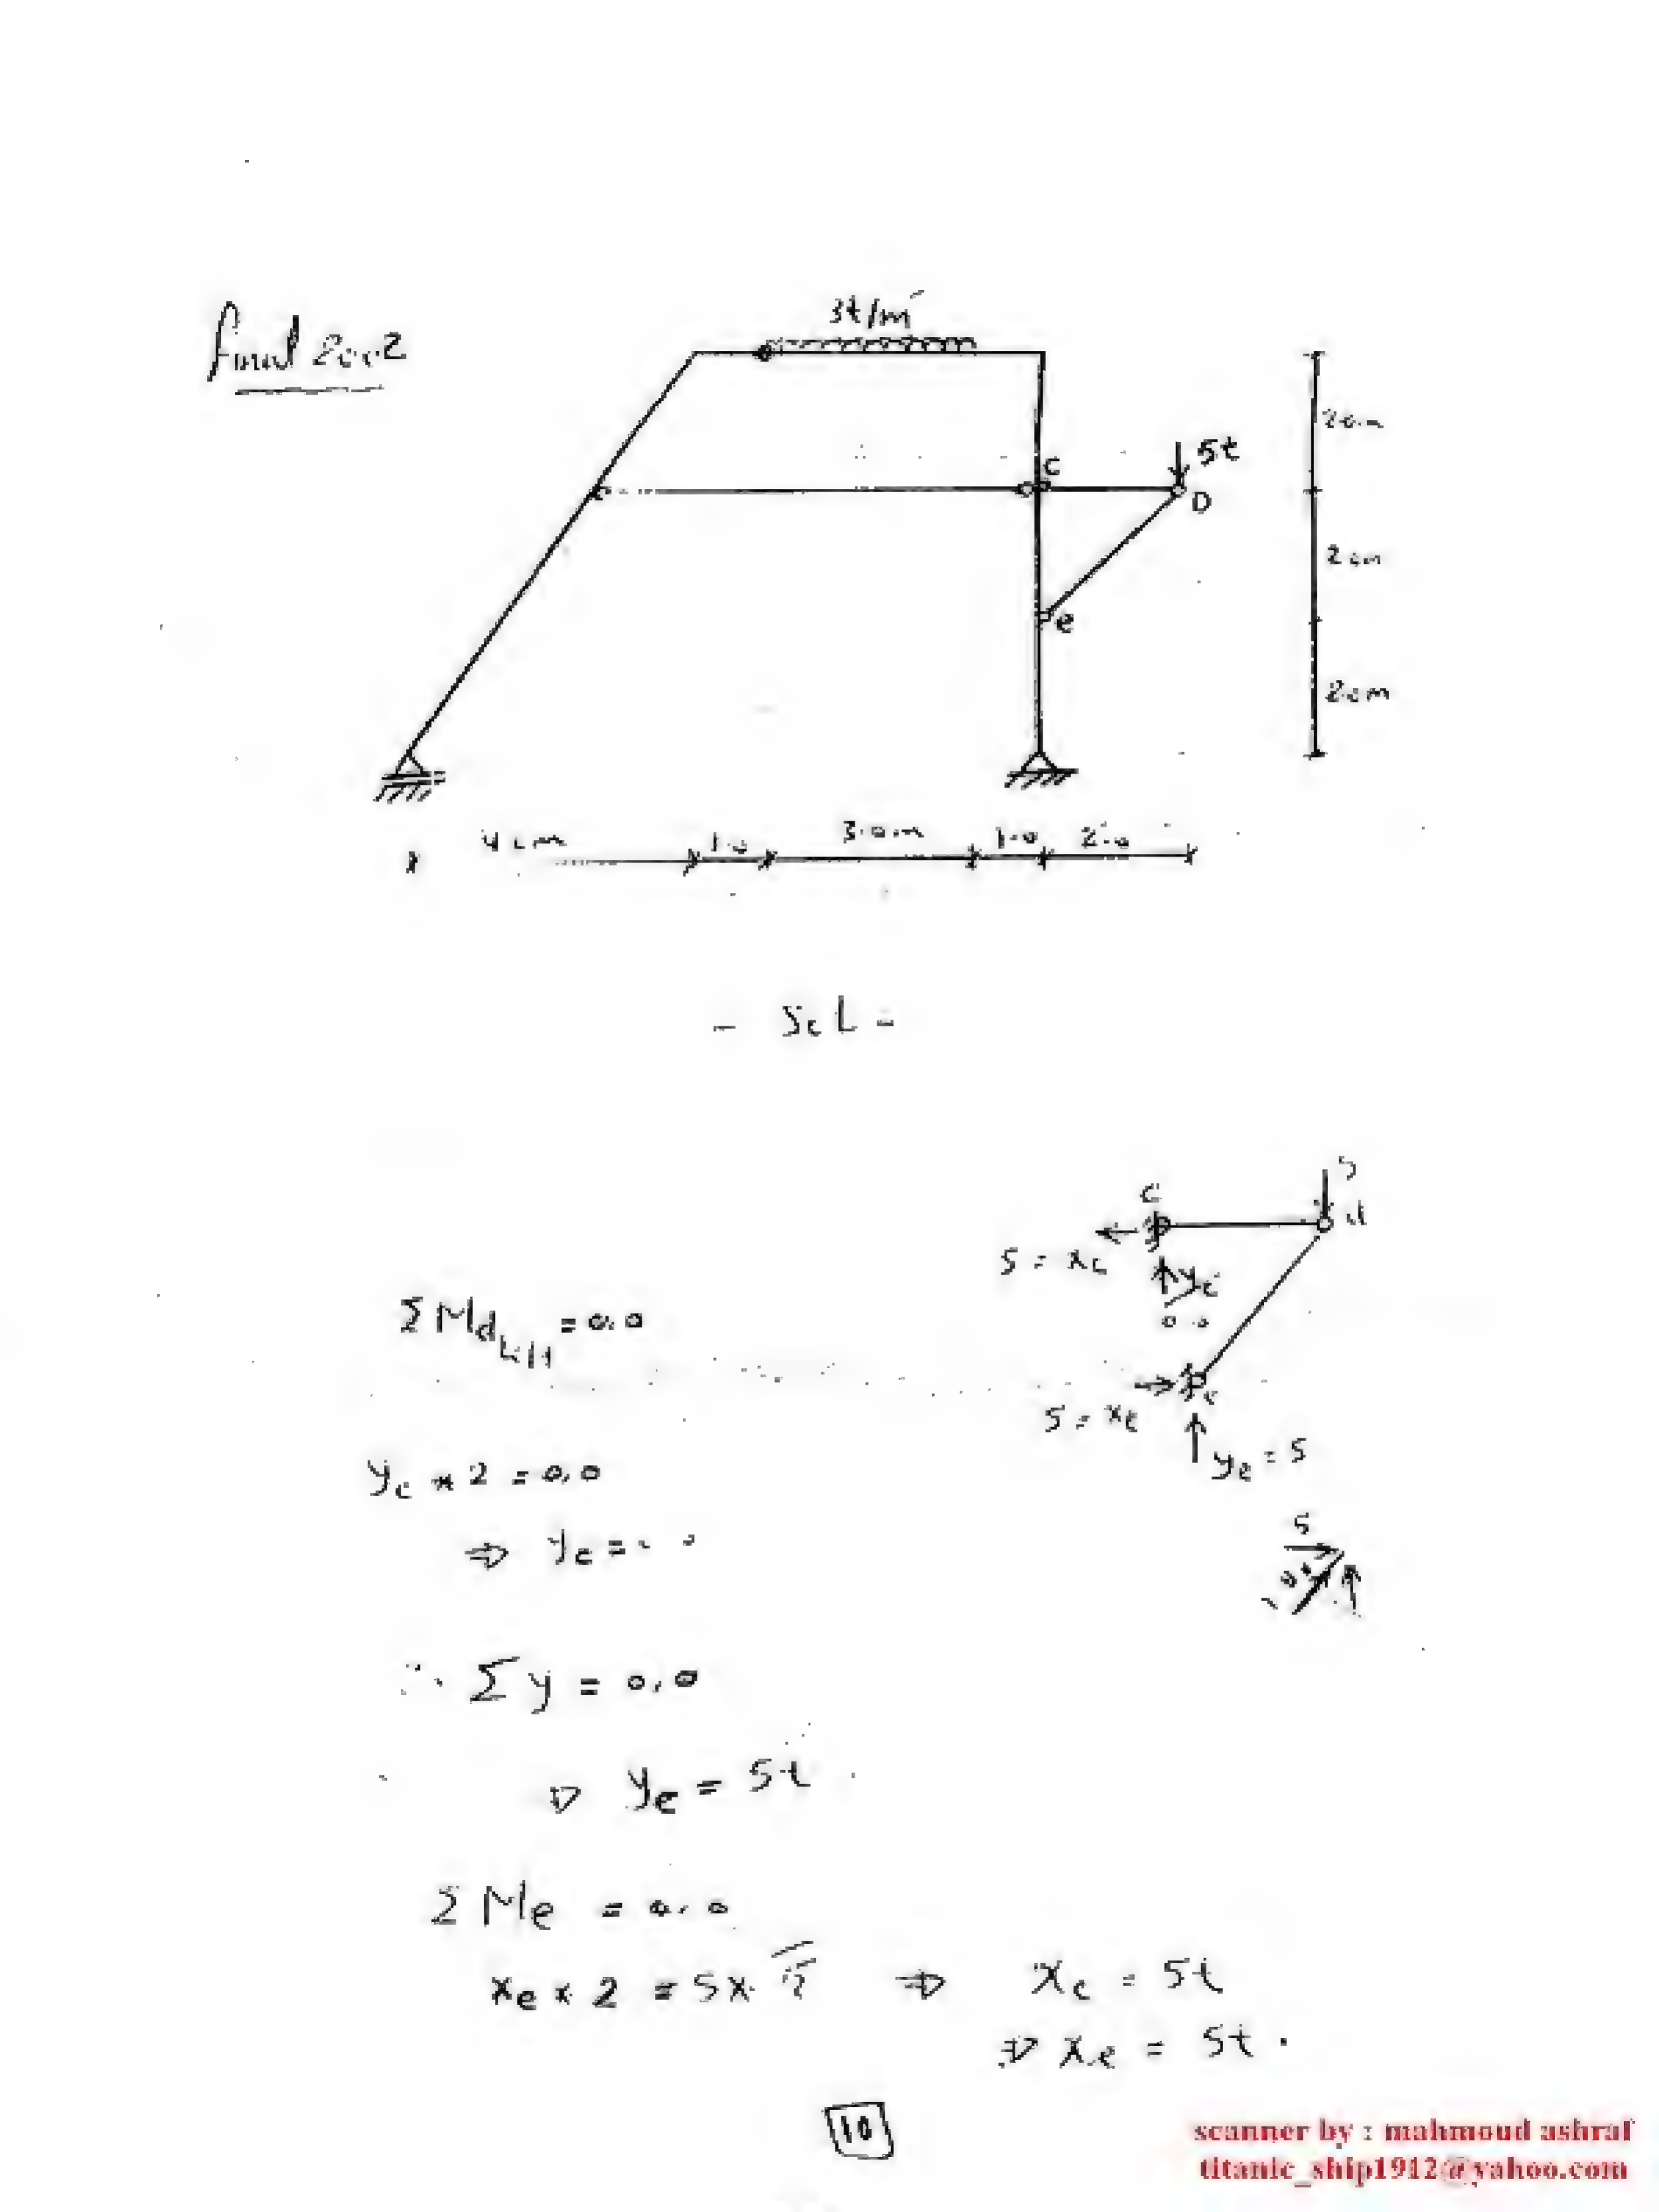 final 2002
3t/m'
5t
C
D
e
2.0m
2.0m
2.0m
4.0m 1.0 3.0m 1.0 2.0
- Sol -
5
C d
5 = Xc
Yc
0.0
ΣMd left = 0.0
5 = Xe
Ye = 5
Yc * 2 = 0.0
⇒ Yc = 0.0
5
∴ Σy = 0.0
⇒ Ye = 5t
ΣMe = 0.0
Xe x 2 = 5 x 2 ⇒ Xc = 5t
⇒ Xe = 5t .
10
scanner by : mahmoud ashraf
titanic_ship1912@yahoo.com